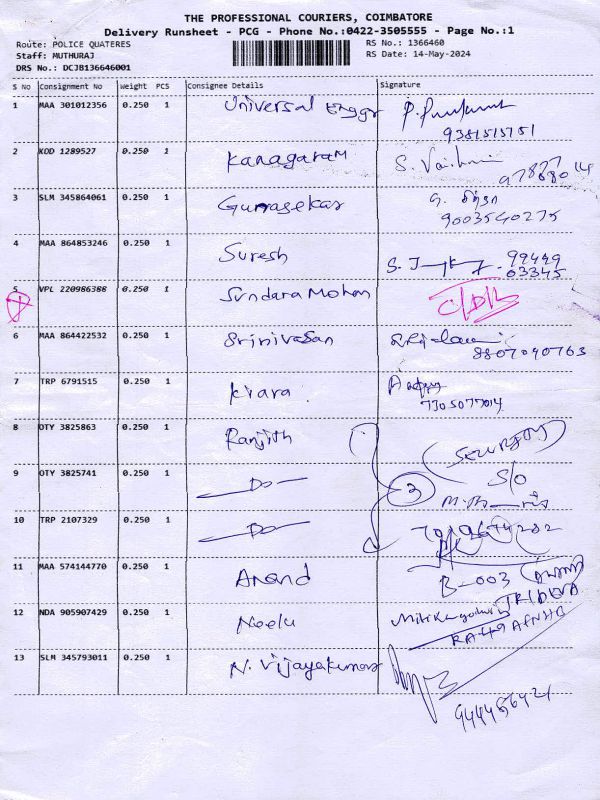 THE PROFESSIONAL COURIERS, COIMBATORE
Delivery Runsheet - PCG - Phone No.:0422-3505555 - Page No.:1
Route: POLICE QUATERES
RS No.: 1366460
Staff: MUTHURAJ
RS Date: 14-May-2024
DRS No.: DCJB136646001
S No Consignment No Weight PCS Consignee Details Signature
1 MAA 301012356 0.250 1 Universal Enggr
9381515751
2 KOD 1289527 0.250 1 Kanagaram S.
3 SLM 345864061 0.250 1 Gunasekar
9003540275
4 MAA 864853246 0.250 1 Suresh S. 99449
03345
5 VPL 220986388 0.250 1 Sundara Mohan C/DB
6 MAA 864422532 0.250 1 Srinivasan
8807090763
7 TRP 6791515 0.250 1 Kiara
7305077014
8 OTY 3825863 0.250 1 Ranjith
9 OTY 3825741 0.250 1 Do 3 S/O
10 TRP 2107329 0.250 1 Do
11 MAA 574144770 0.250 1 Anand B-003
12 NDA 905907429 0.250 1 Neelu
13 SLM 345793011 0.250 1 N. Vijayakumar